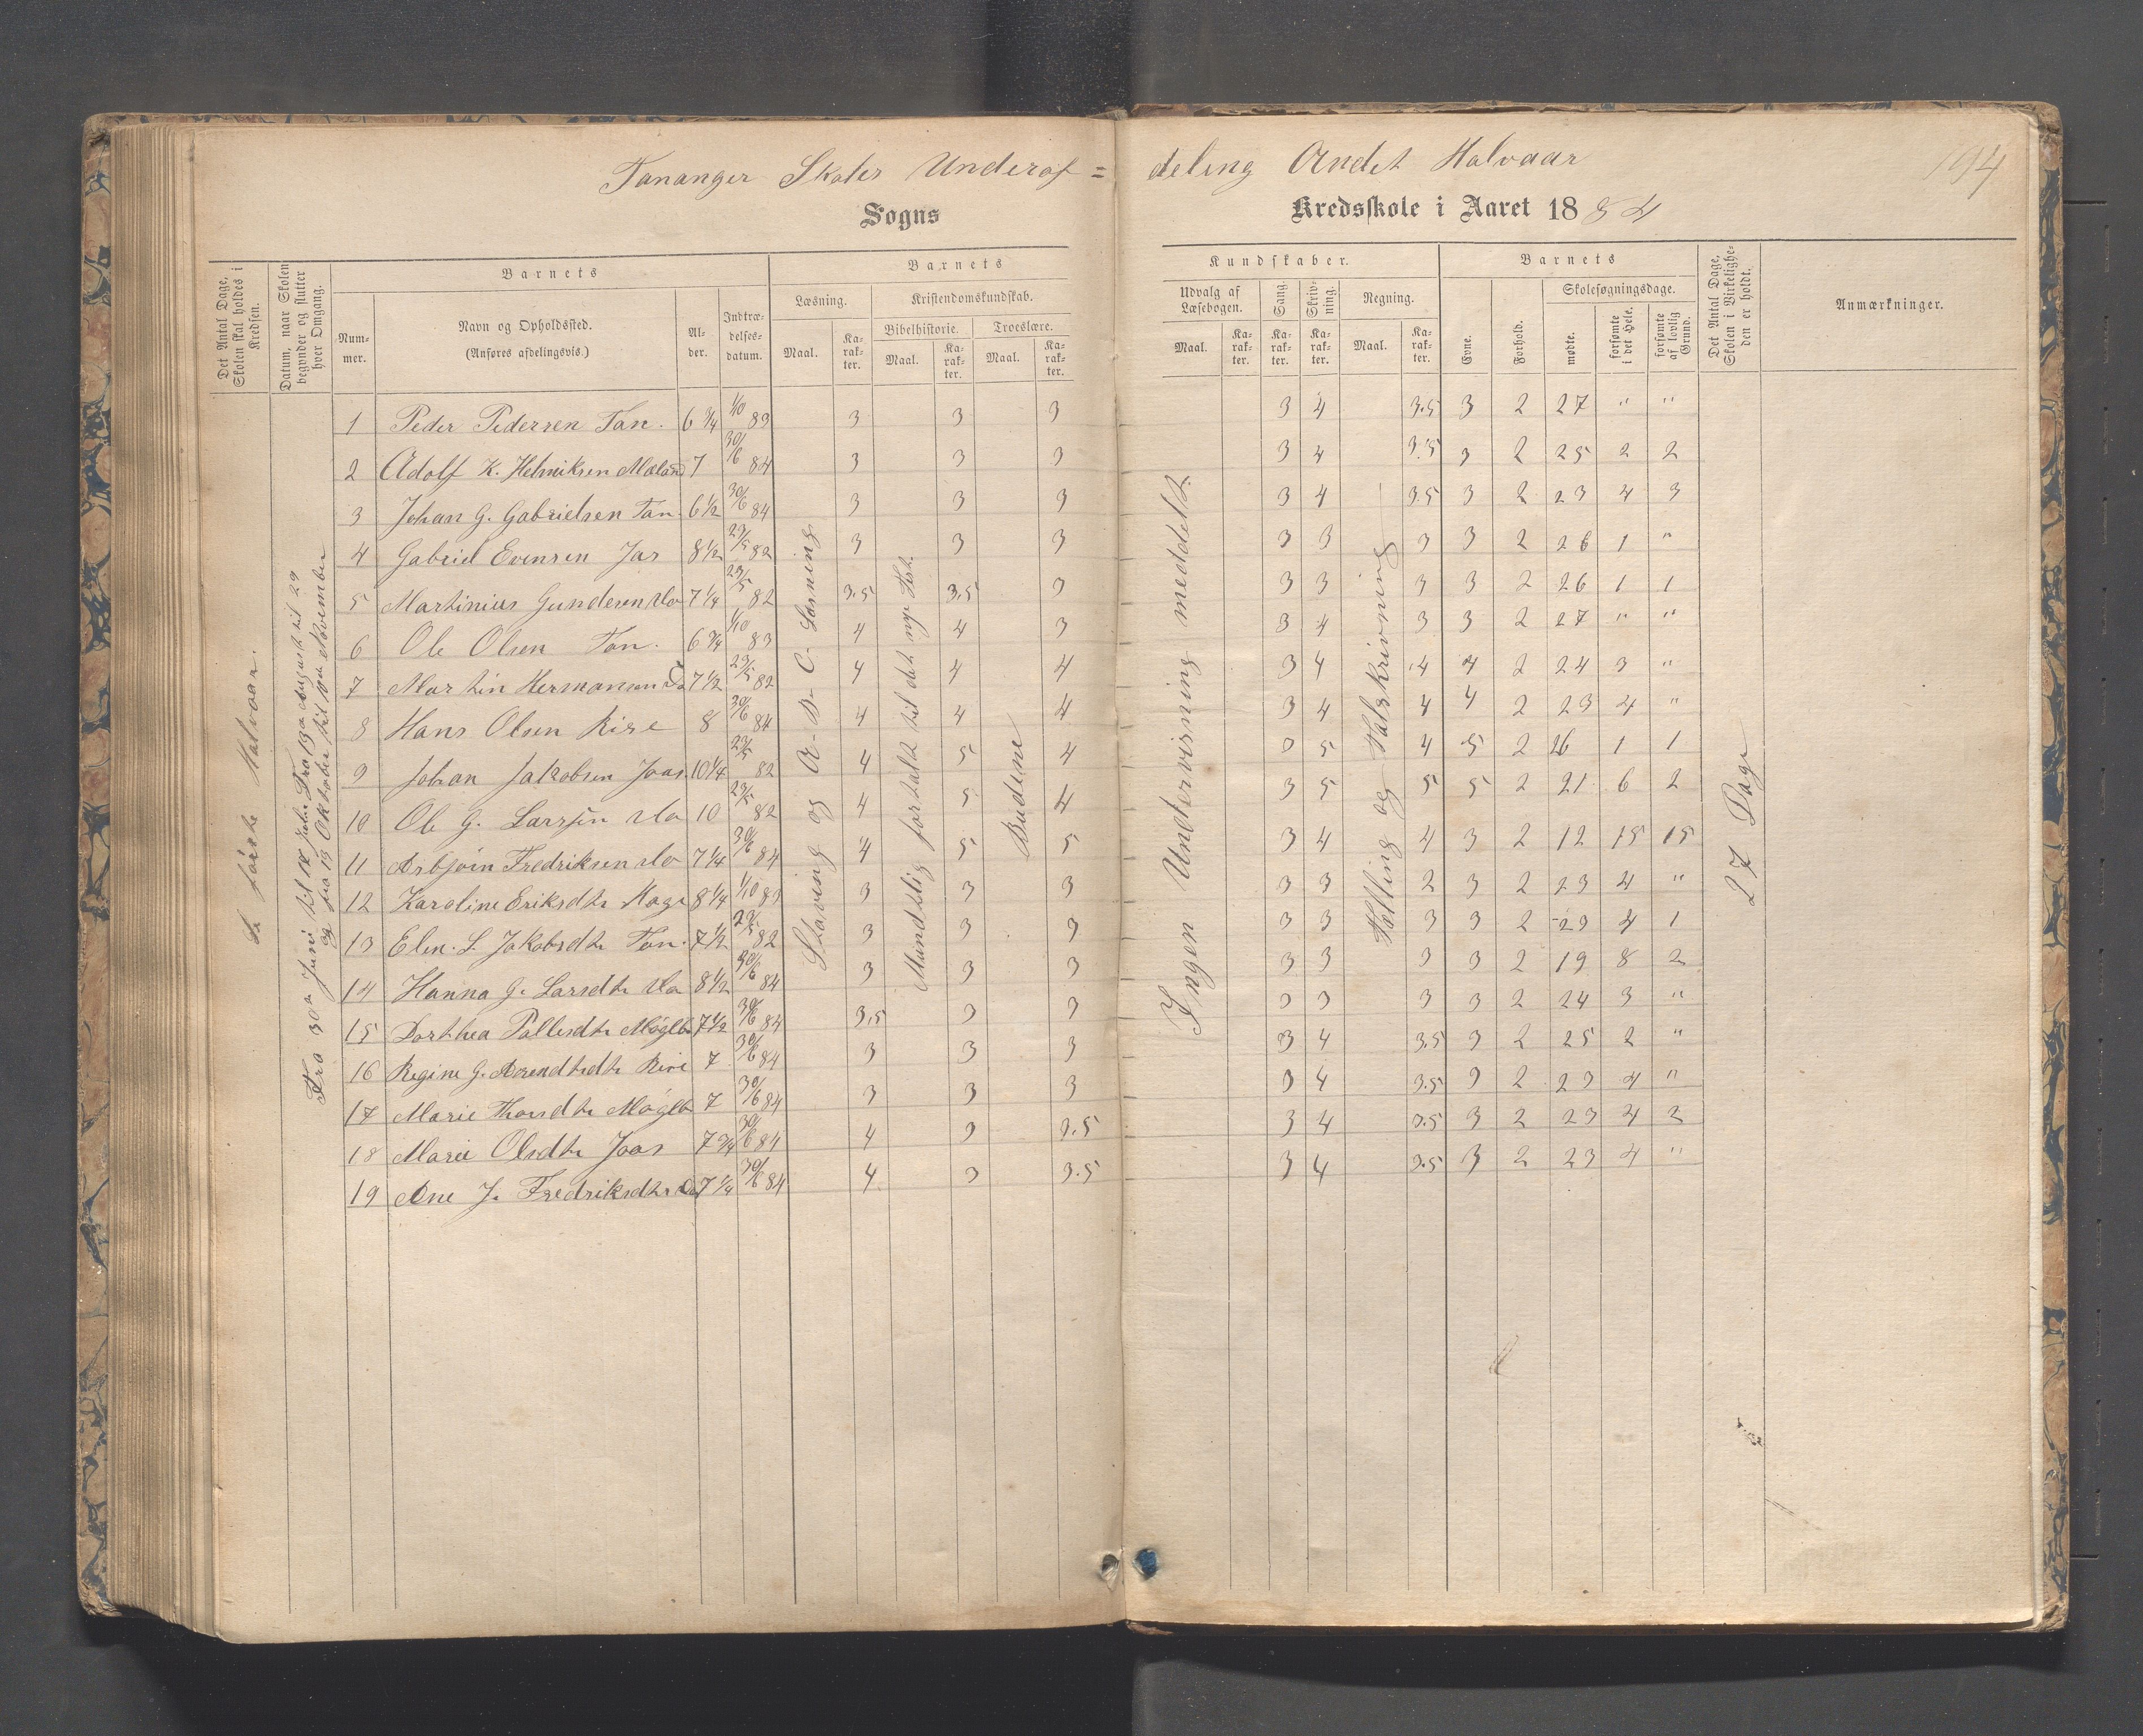 Tananger Skoles Underaf = deling Andet Halvaar
194
Sogns Kredsskole i Aaret 1884
Det Antal Dage, Skolen skal holdes i Kredsen.
Datum, naar Skolen begynder og slutter hver Omgang.
Barnets
Nummer.
Navn og Opholdssted.
(Anføres afdelingsvis.)
Alder.
Indtrædelsesdatum.
Barnets Kundskaber.
Læsning.
Maal.
Karakter.
Kristendomskundskab.
Bibelhistorie.
Maal.
Karakter.
Troeslære.
Maal.
Karakter.
Udvalg af Læsebogen.
Maal.
Karakter.
Sang.
Karakter.
Skrivning.
Karakter.
Regning.
Maal.
Karakter.
Barnets
Evne.
Forhold.
Skolesøgningsdage.
mødte.
forsømte i det Hele.
forsømte af lovlig Grund.
Det Antal Dage, Skolen i Virkeligheden er holdt.
Anmærkninger.
Se første Halvaar.
Fra 30te Juni til 12 Juli. Fra 13de August til 29
og fra 19 Oktober til 10de November
Staving og A-B-C-Læsning
Mundtlig fortalt til det nye Test.
Budene
Ingen Undervisning meddelt.
Tælling og Talskrivning
27 Dage
1 Peder Pedersen Tan. 6 3/4 1/10 83 3 3 3 3 4 3.5 3 2 27 " "
2 Adolf K. Helmiksen Mæland 7 30/6 84 3 3 3 3 4 3.5 3 2 25 2 2
3 Johan G. Gabrielsen Tan. 6 1/2 30/6 84 3 3 3 3 4 3.5 3 2 23 4 3
4 Gabriel Evensen Jas 8 1/2 23/5 82 3 3 3 3 3 3 3 2 26 1 "
5 Martinius Gundersen do 7 1/4 23/5 82 3.5 3.5 3 3 3 3 3 2 26 1 1
6 Ole Olsen Tan. 6 3/4 1/10 83 4 4 3 3 4 3 3 2 27 " "
7 Martin Hermansen do 7 1/2 23/5 82 4 4 4 3 4 4 4 2 24 3 "
8 Hans Olsen Rise 8 30/6 84 4 4 4 3 4 4 4 2 23 4 "
9 Johan Jakobsen Jaas 10 1/4 23/5 82 4 5 4 3 5 4 5 2 26 1 1
10 Ole G. Larssen do 10 23/5 82 4 5 4 3 5 5 5 2 21 6 2
11 Asbjøin Fredriksen do 7 1/4 30/6 84 4 5 5 3 4 4 3 2 12 15 15
12 Karoline Eriksdtr Hage 8 1/4 1/10 83 3 3 3 3 3 2 3 2 23 4 "
13 Elen. S. Jakobsdtr Tan. 7 1/2 23/5 82 3 3 3 3 3 3 3 2 23 4 1
14 Hanna G. Larsdtr do 8 1/2 30/6 84 3 3 3 3 3 3 3 2 19 8 2
15 Dorthea Pallesdtr Møgleb 7 1/2 30/6 84 3.5 3 3 3 3 3 3 2 24 3 "
16 Regine G. Arendtsdtr Risa 7 30/6 84 3 3 3 3 4 3.5 3 2 25 2 "
17 Marie Thorsdtr Møgleb 7 30/6 84 3 3 3 3 4 3.5 3 2 23 4 "
18 Marie Olsdtr Jaas 7 3/4 30/6 84 4 3 3.5 3 4 3.5 3 2 23 4 2
19 Ane J. Fredriksdtr do 7 1/4 30/6 84 4 3 3.5 3 4 3.5 3 2 23 4 "